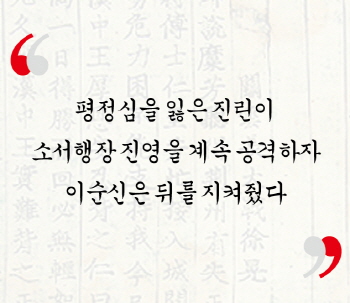 평정심을 잃은 진린이
소서행장 진영을 계속 공격하자
이순신은 뒤를 지켜줬다